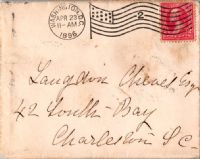 WASHINGTON, D.C.
APR 23
11-AM
1896
2
Langdon Cheves Esq
42 South-Bay
Charleston S C-